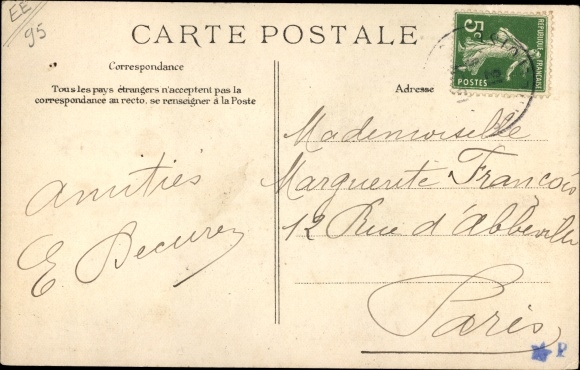 EE
95
CARTE POSTALE
Correspondance
Tous les pays étrangers n'acceptent pas la
correspondance au recto, se renseigner à la Poste
Amitiés
E. Becurez
Adresse
5
POSTES
REPUBLIQUE FRANÇAISE
Mademoiselle
Marguerite François
12 Rue d'Abbeville
Paris
P